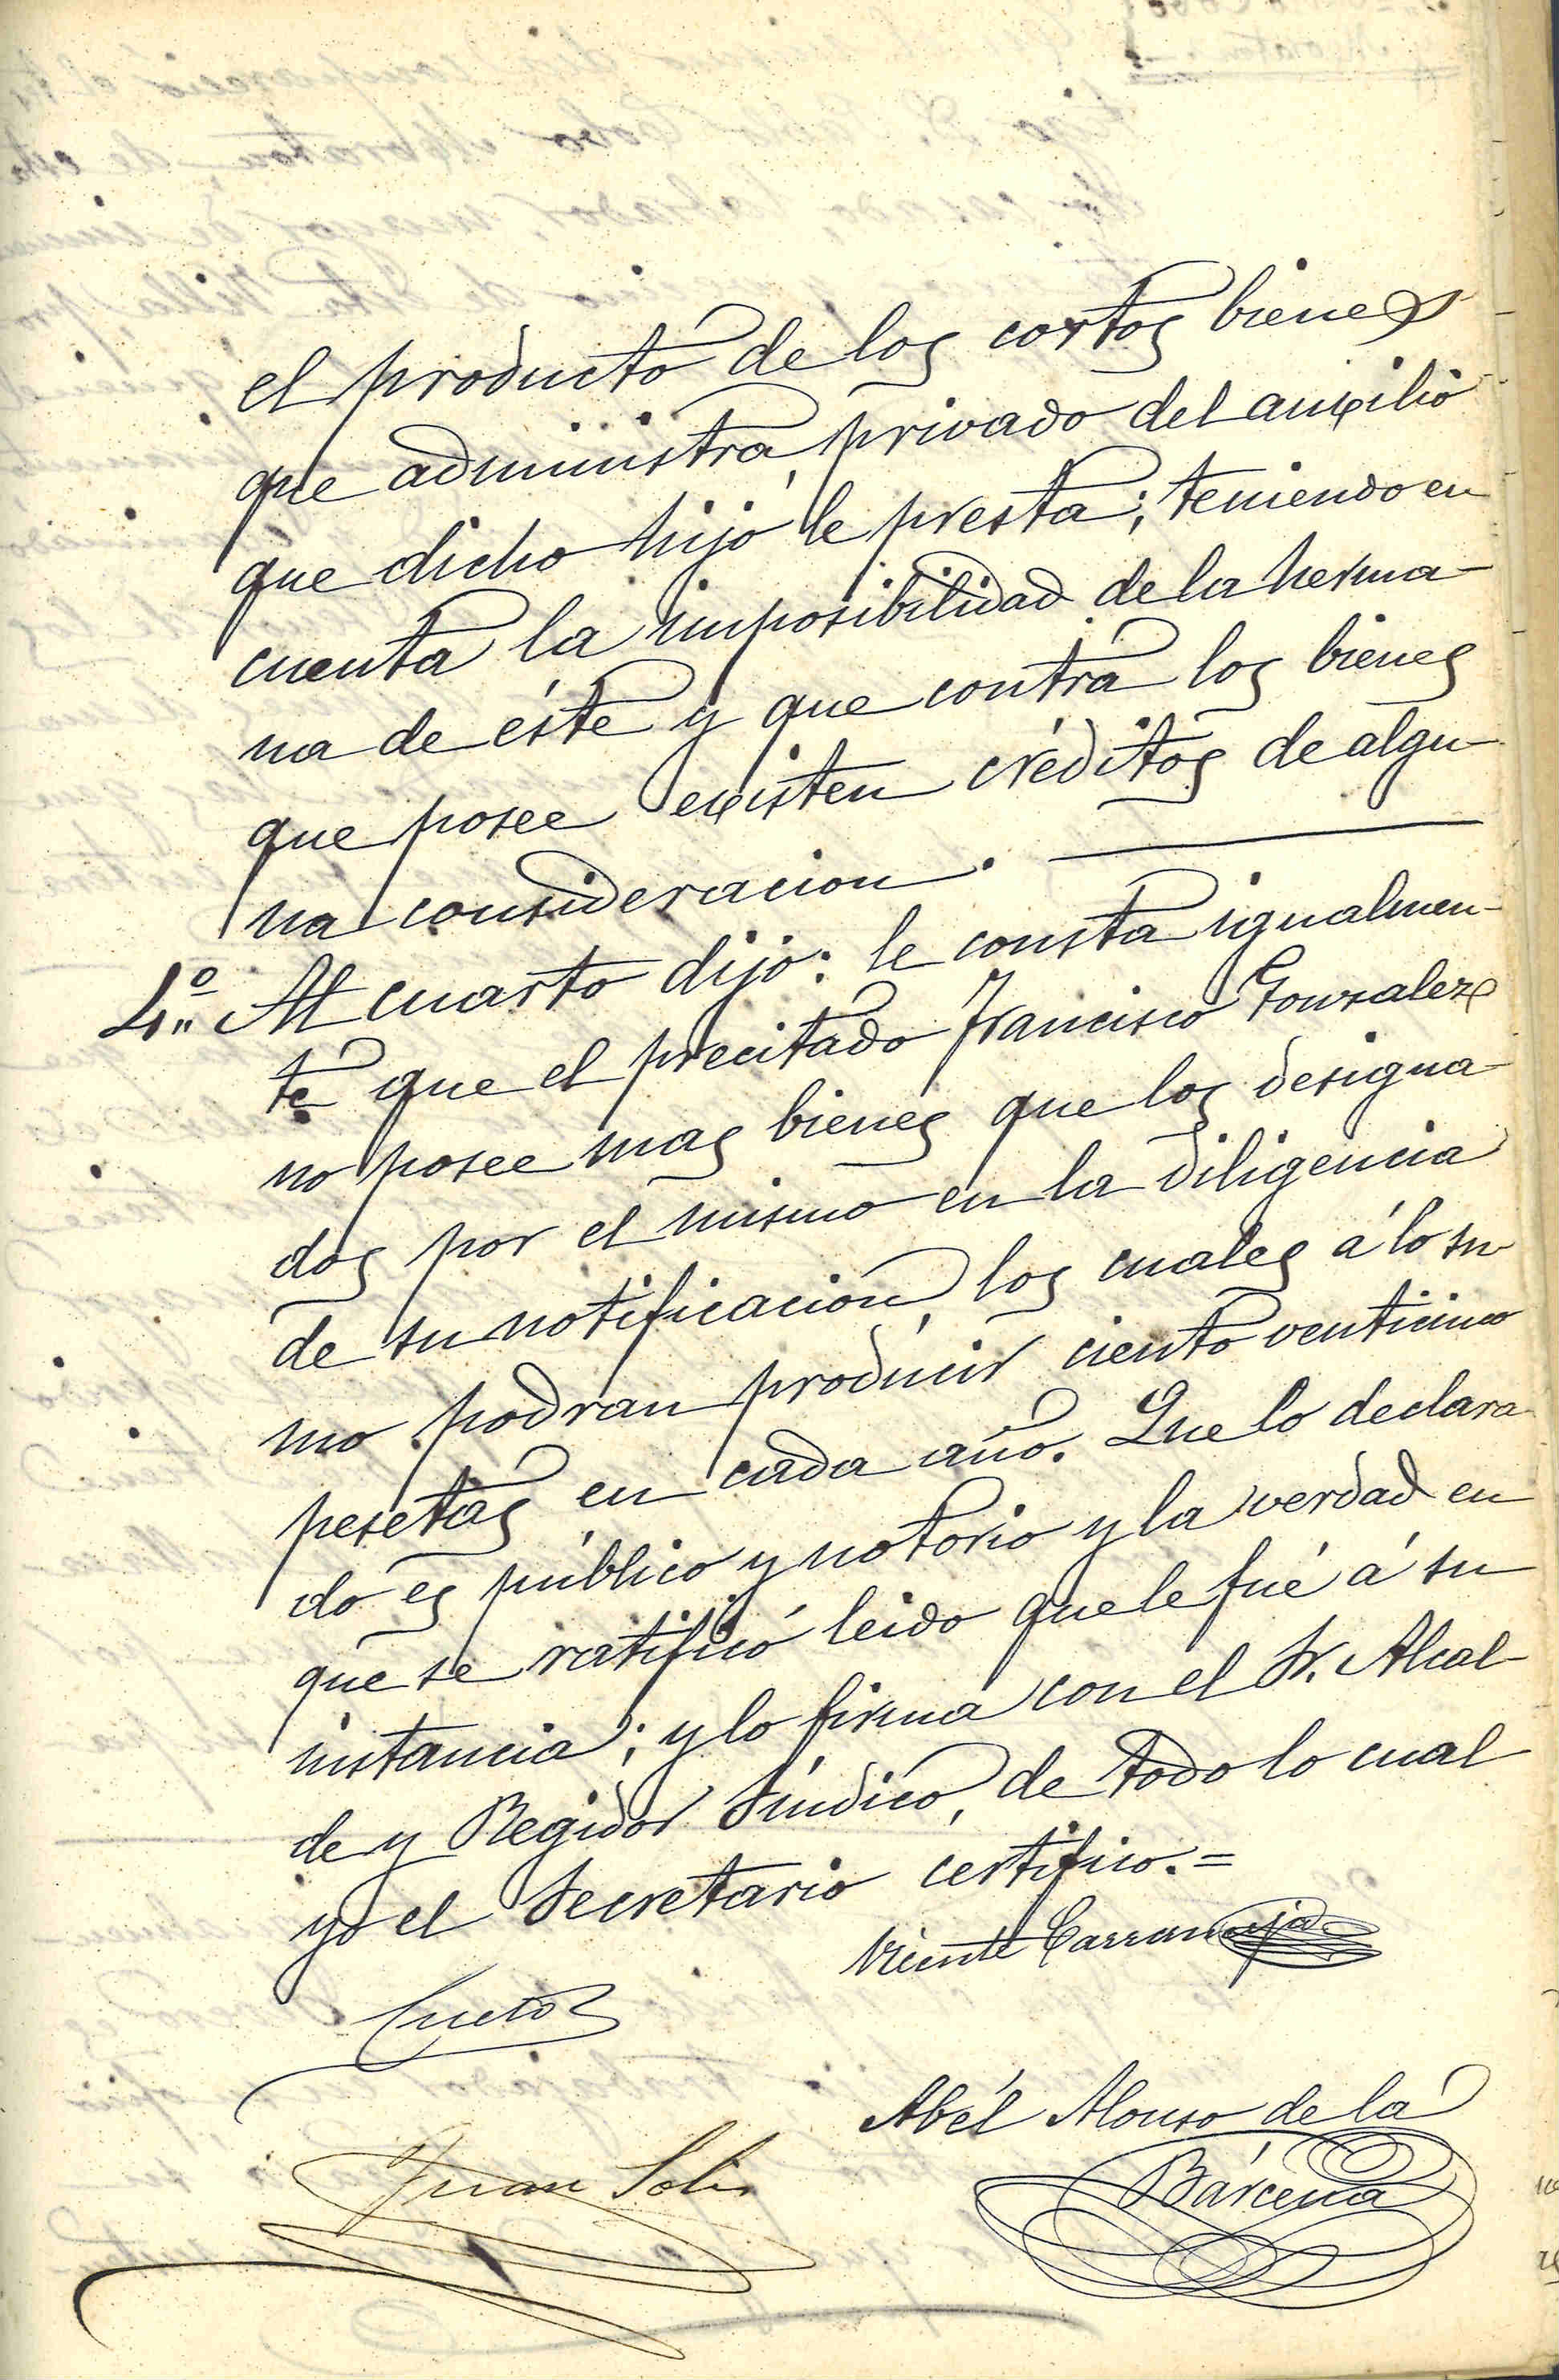 el producto de los cortos bienes
que administra, privado del auxilio
que dicho hijo le presta; teniendo en
cuenta la imposibilidad de la herma-
na de éste y que contra los bienes
que posee existen créditos de algu-
na consideracion.
4.º Al cuarto dijo: le consta igualmen-
te que el precitado Francisco Gonzalez
no posee mas bienes que los designa-
dos por el mismo en la diligencia
de su notificación, los cuales á lo su-
mo podran producir ciento venticinco
pesetas en cada año. Que lo declara-
do es público y notorio y la verdad en
que se ratificó leido que le fué á su
instancia; y lo firma con el Sr. Alcal-
de y Regidor Síndico, de todo lo cual
yo el Secretario certifico.=
Vicente
Cueto
Abél Alonso de la
Bárcena
Juan Solis